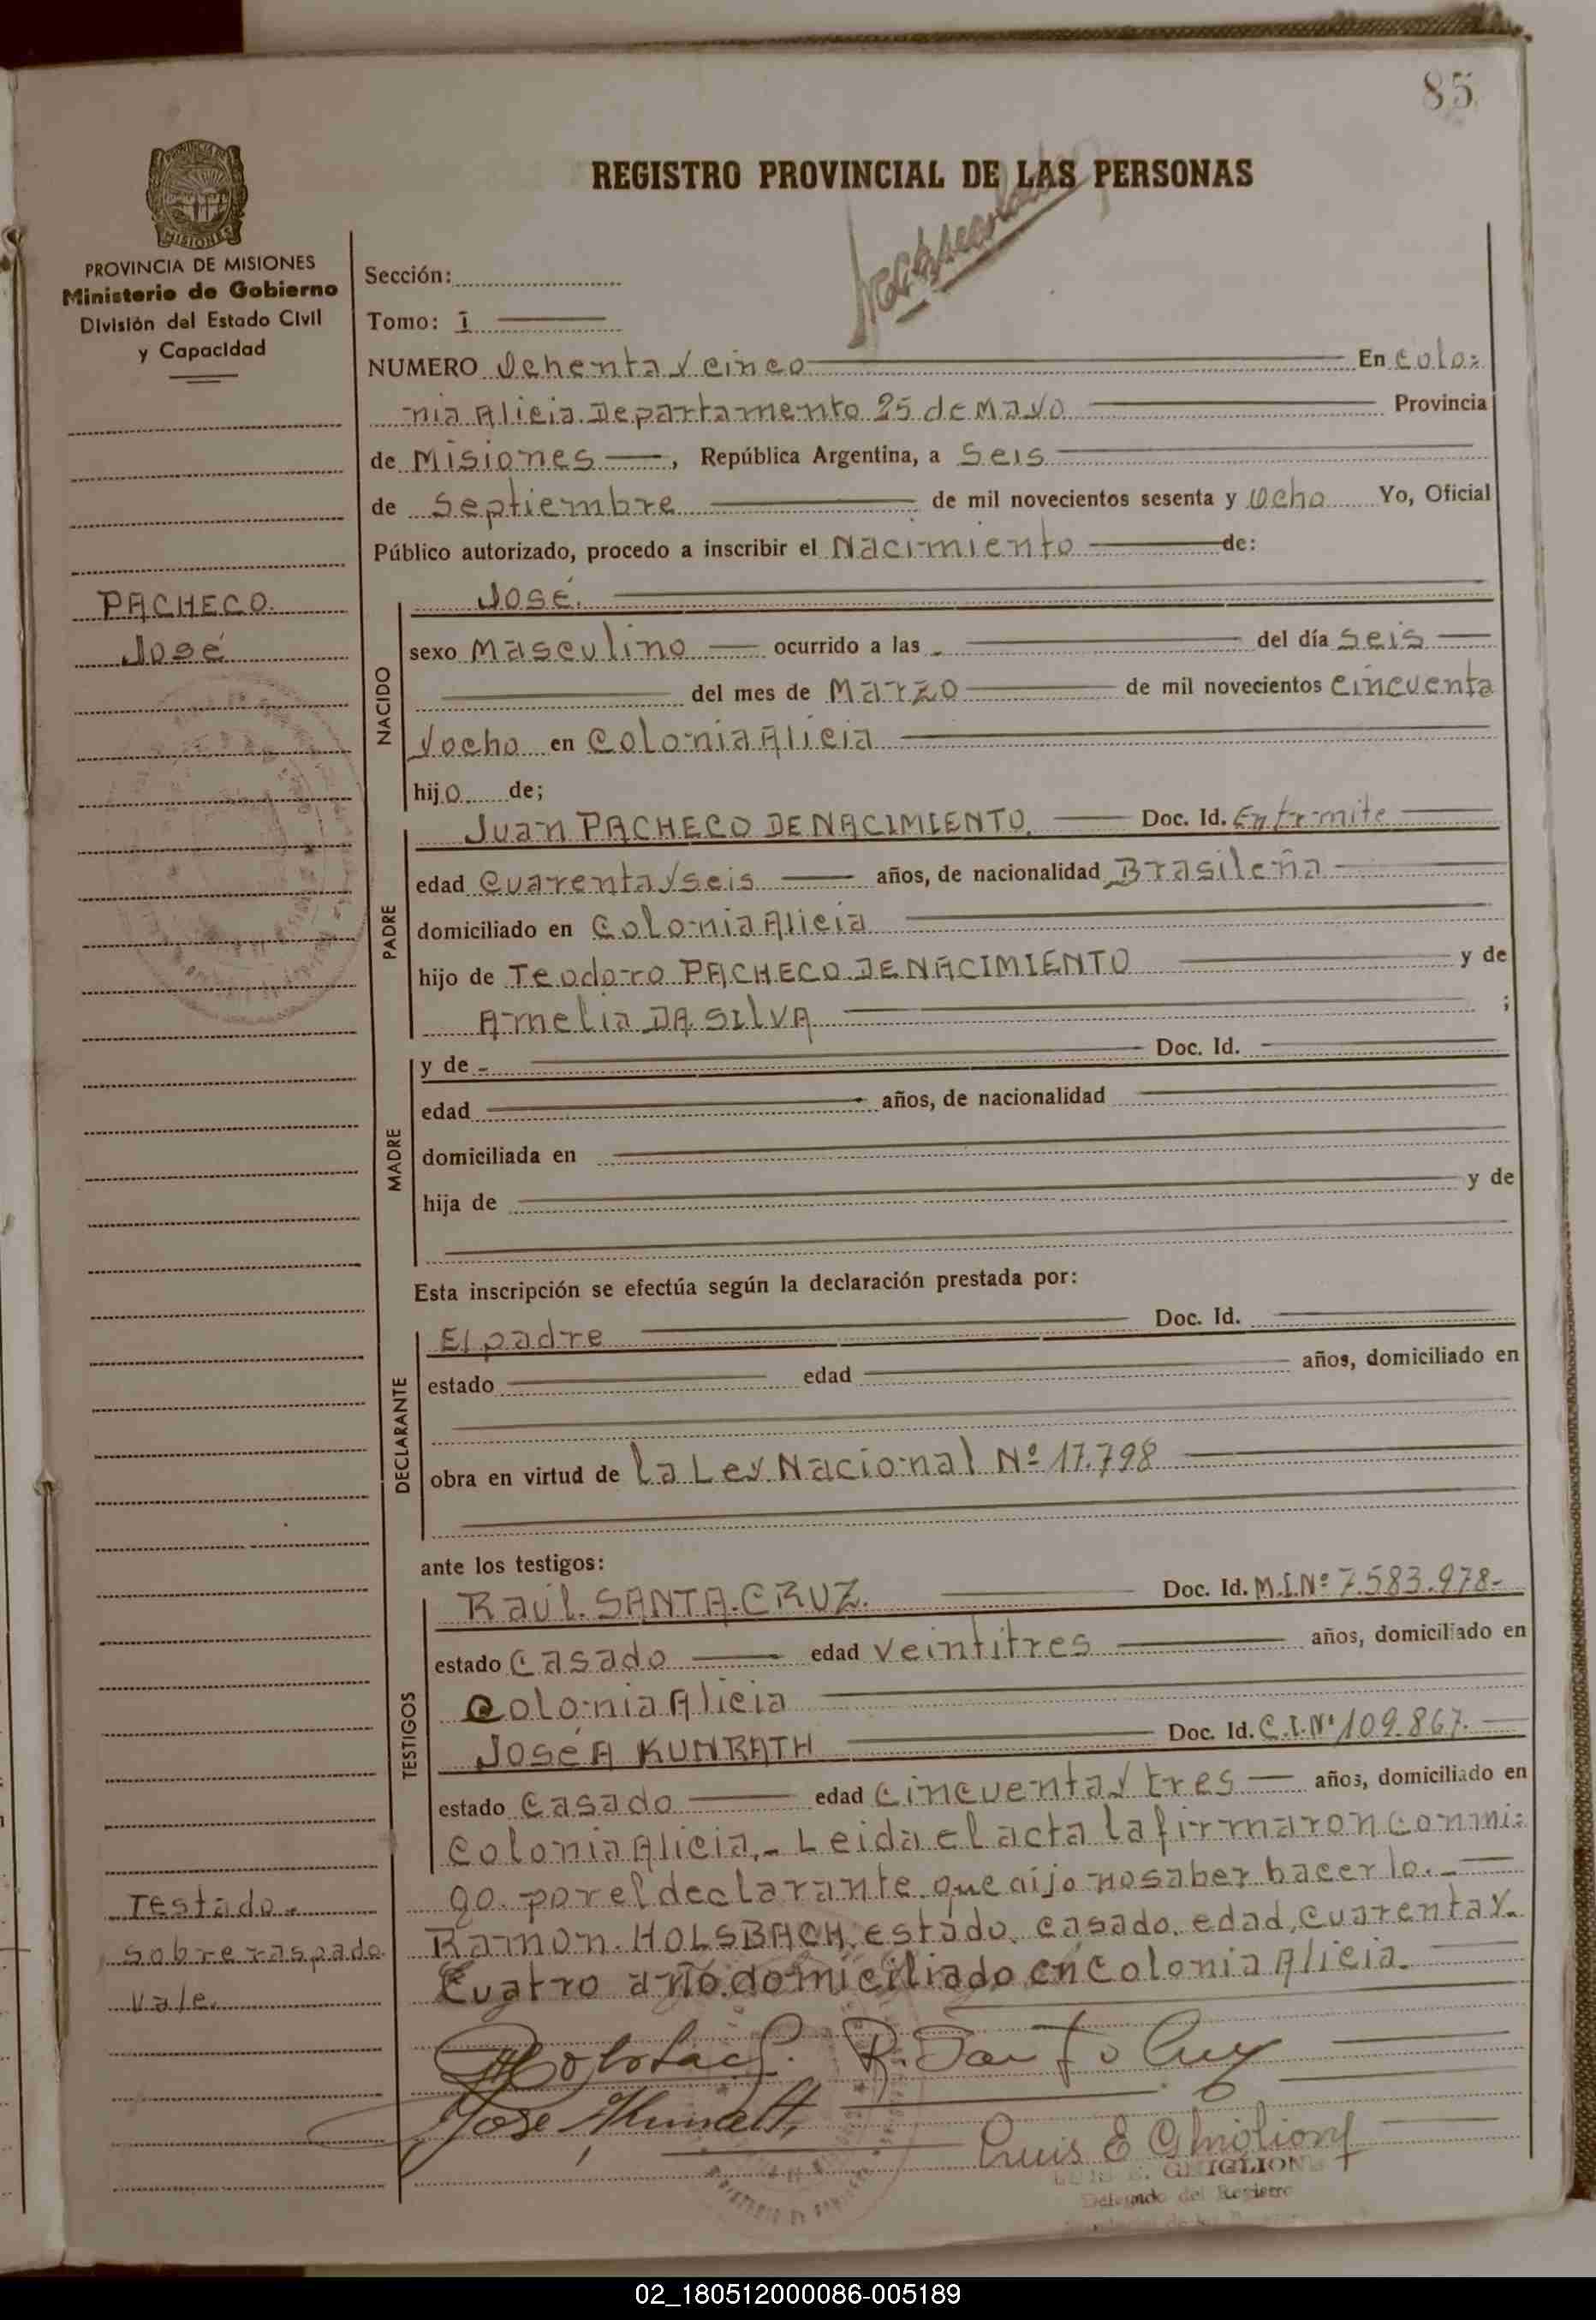 85
REGISTRO PROVINCIAL DE LAS PERSONAS
MISIONES
PROVINCIA DE MISIONES
Ministerio de Gobierno
División del Estado Civil
y Capacidad
Sección:
Tomo: I
NUMERO Ochenta y cinco En Colo=
nia Alicia Departamento 25 de Mayo Provincia
de Misiones, República Argentina, a Seis
de Septiembre de mil novecientos sesenta y ocho Yo, Oficial
Público autorizado, procedo a inscribir el Nacimiento de:
PACHECO
José
NACIDO
José.
sexo Masculino ocurrido a las - del día Seis
del mes de Marzo de mil novecientos Cincuenta
y ocho en Colonia Alicia
hijo de;
PADRE
Juan PACHECO DE NACIMIENTO. Doc. Id. En trmite
edad Cuarenta y seis años, de nacionalidad Brasileña
domiciliado en Colonia Alicia
hijo de Teodoro PACHECO DE NACIMIENTO y de
Amelia DA SILVA ;
MADRE
y de - Doc. Id.
edad años, de nacionalidad
domiciliada en
hija de y de
Esta inscripción se efectúa según la declaración prestada por:
DECLARANTE
El padre Doc. Id.
estado edad años, domiciliado en
obra en virtud de la Ley Nacional Nº 17.798
ante los testigos:
TESTIGOS
Raúl. SANTA.CRUZ. Doc. Id. M.I.Nº 7.583.978-
estado Casado edad veintitres años, domiciliado en
Colonia Alicia
José A KUNRATH Doc. Id. C.I.Nº 109.867.
estado Casado edad Cincuenta y tres años, domiciliado en
Colonia Alicia.- Leida el acta la firmaron conmi=
go. por el declarante que dijo no saber hacerlo.-
Ramon. HOLSBACH, estado casado, edad, cuarenta y
Cuatro año domiciliado en Colonia Alicia.
Testado.
sobre raspado
Vale.
R. Santa Cruz
Jose A Kunrath
Luis E Ghiglione
LUIS E. GHIGLIONE
Delegado del Registro
02_180512000086-005189